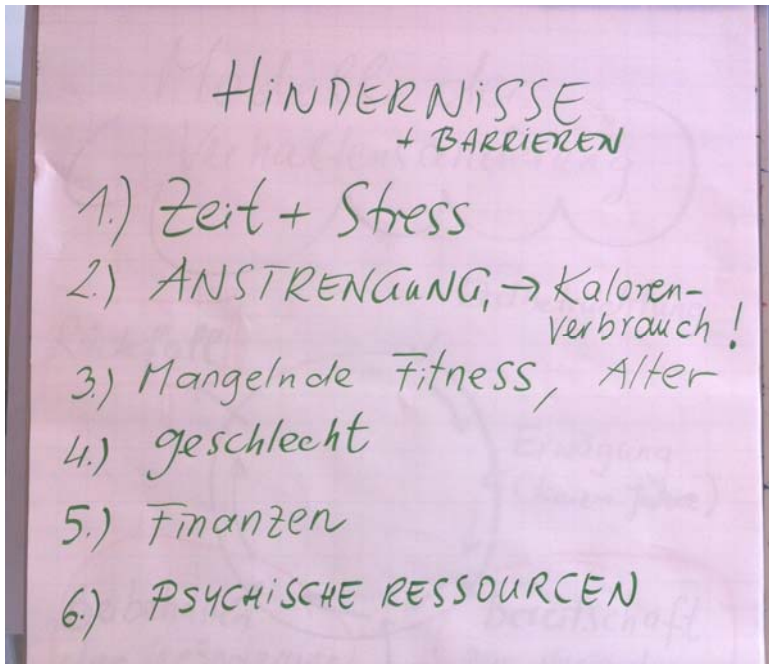 HiNDERNiSSE
+ BARRIEREN
1.) Zeit + Stress
2.) ANSTRENGuNG, → Kaloren-
verbrauch!
3.) Mangelnde Fitness, Alter
4.) geschlecht
5.) Finanzen
6.) PSYCHiSCHE RESSOURCEN
Erwägung
Bereitschaft